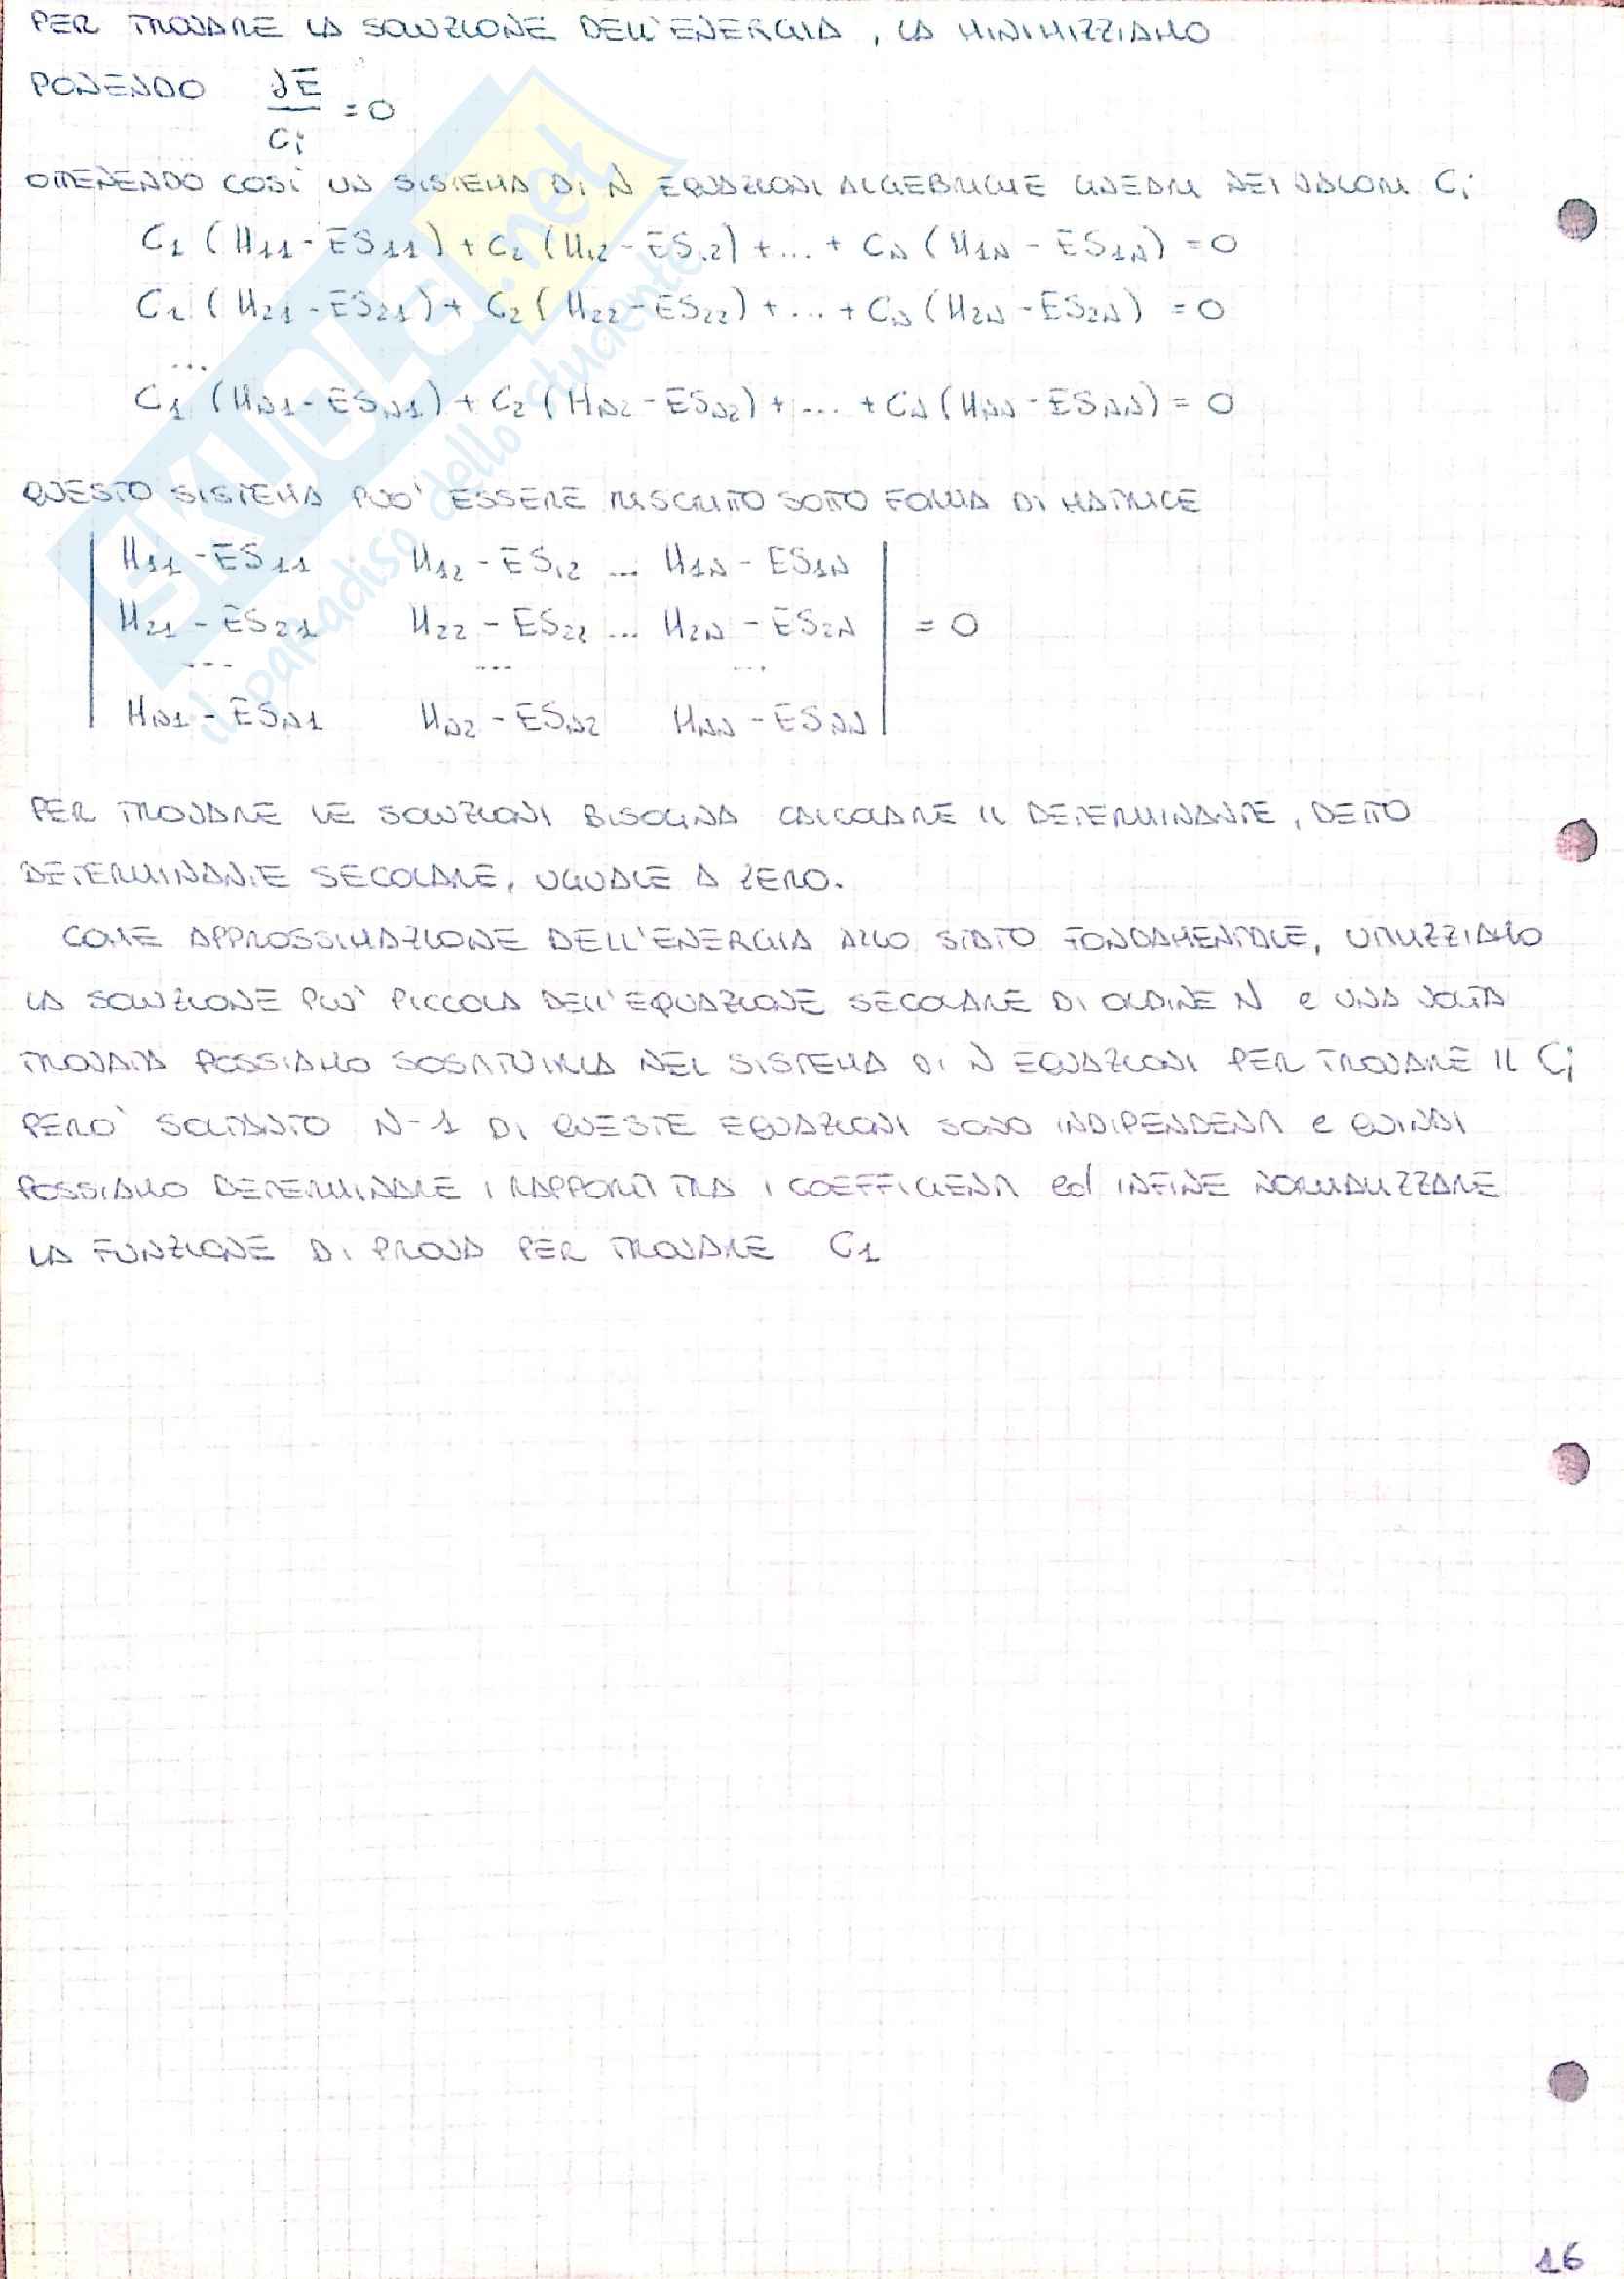 PER TROVARE LA SOLUZIONE DELL'ENERGIA, LA MINIMIZZIAMO
PONENDO ∂E/Ci = 0
OTTENENDO COSÌ UN SISTEMA DI N EQUAZIONI ALGEBRICHE LINEARI NEI VALORI Ci
C1 (H11 - ES11) + C2 (H12 - ES12) + ... + CN (H1N - ES1N) = 0
C1 (H21 - ES21) + C2 (H22 - ES22) + ... + CN (H2N - ES2N) = 0
...
C1 (HN1 - ESN1) + C2 (HN2 - ESN2) + ... + CN (HNN - ESNN) = 0
QUESTO SISTEMA PUO' ESSERE RISCRITTO SOTTO FORMA DI MATRICE
| H11 - ES11 H12 - ES12 ... H1N - ES1N |
| H21 - ES21 H22 - ES22 ... H2N - ES2N | = 0
... ... ...
| HN1 - ESN1 HN2 - ESN2 HNN - ESNN |
PER TROVARE LE SOLUZIONI BISOGNA CALCOLARE IL DETERMINANTE, DETTO
DETERMINANTE SECOLARE, UGUALE A ZERO.
COME APPROSSIMAZIONE DELL'ENERGIA ALLO STATO FONDAMENTALE, UTILIZZIAMO
LA SOLUZIONE PIU' PICCOLA DELL'EQUAZIONE SECOLARE DI ORDINE N e UNA VOLTA
TROVATA POSSIAMO SOSTITUIRLA NEL SISTEMA DI N EQUAZIONI PER TROVARE IL Ci
PERO' SOLTANTO N-1 DI QUESTE EQUAZIONI SONO INDIPENDENTI e QUINDI
POSSIAMO DETERMINARE I RAPPORTI TRA I COEFFICIENTI ed INFINE NORMALIZZARE
LA FUNZIONE DI PROVA PER TROVARE C1
16
SKUOLA.net
il paradiso dello studente